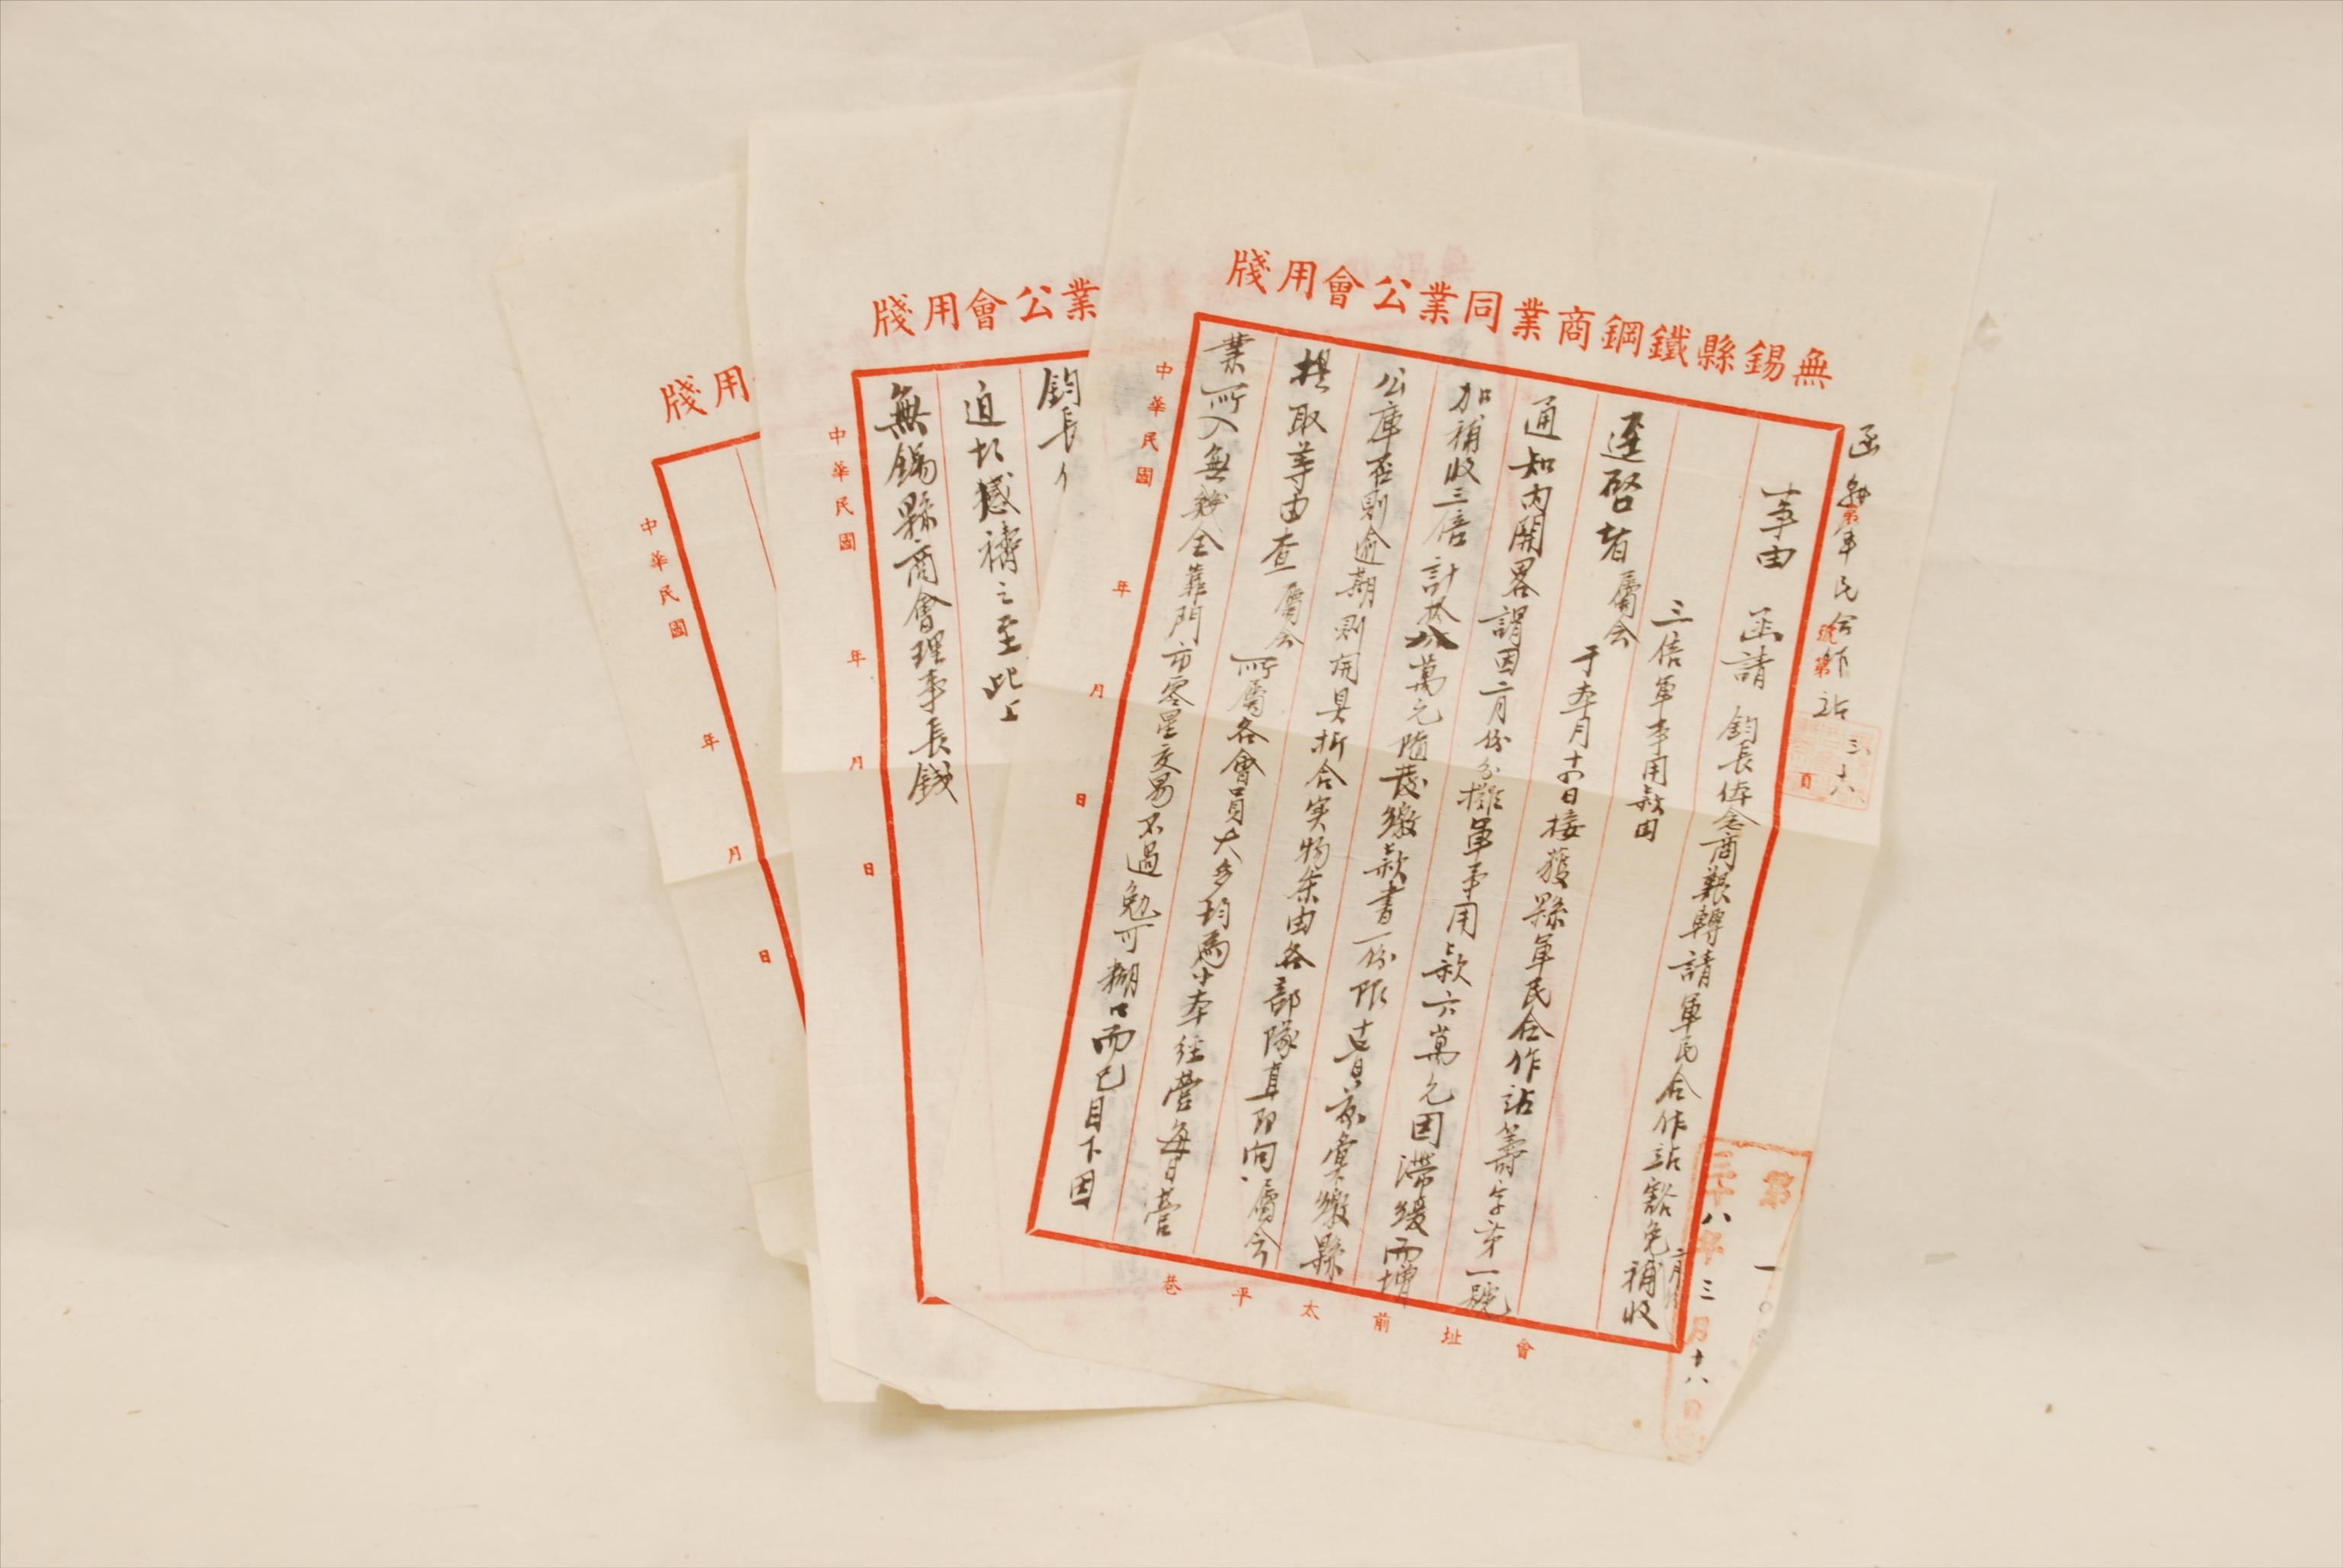 無錫縣鐵鋼商業同業公會用牋
函 縣軍民合作站 三、十八
事由 函請 鈞長俯念商艱轉請軍民合作站豁免二月份補收
三倍軍事用款由
逕啓者屬会于本月十六日接獲縣軍民合作站籌字第一號
通知內開畧謂因二月份分攤軍事用款六萬元因滯緩而增
加補收三倍計拾八萬元隨發繳款書一份限古昔日以前彙繳縣
公庫否則逾期則開具折合実物条由各部隊直即向屬会
提取等由查屬会所屬各會員大多均為小本經營每日營
業所入無幾全靠門市零星交易不過勉可糊口而已目下因
中華民國 年 月 日
會址前太平巷
第 號 第 頁
三十八年三月十八日
業公會用牋
鈞長
迫切感禱之至此上
無錫縣商會理事長錢
中華民國 年 月 日
用牋
中華民國 年 月 日